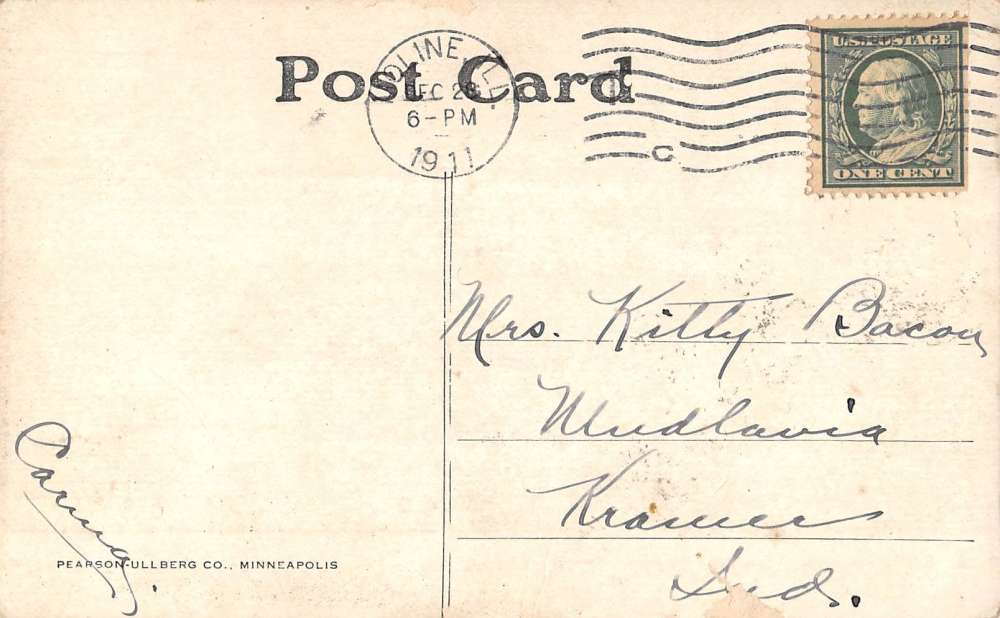 Post Card
MOLINE, ILL.
DEC 28
6-PM
1911
C
U.S. POSTAGE
ONE CENT
Mrs. Kitty Bacon
Mudlavia
Kramer
Ind.
PEARSON-ULLBERG CO., MINNEAPOLIS